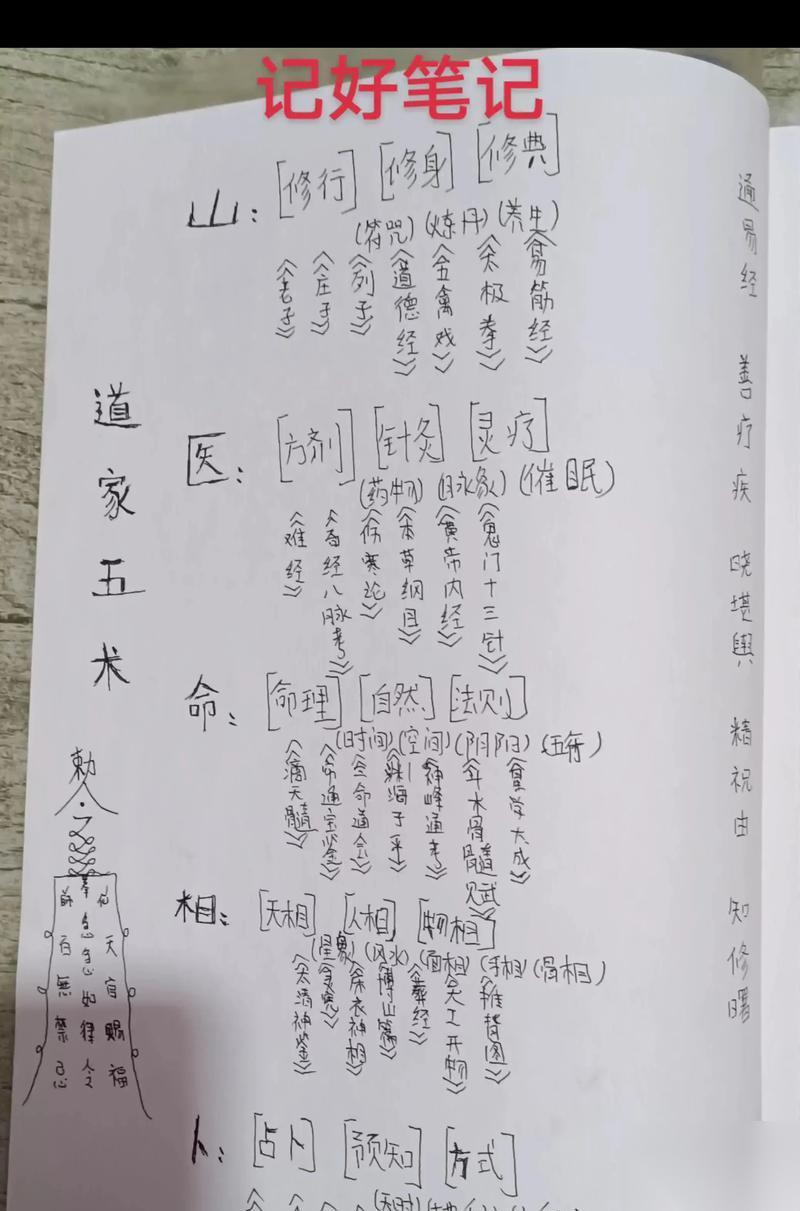 记好笔记
道家五术
山：[修行] [修身] [修典]
(符咒) (炼丹) (养生)
《老子》
《庄子》
《列子》
《道德经》
《五禽戏》
《太极拳》
《易筋经》
医：[方剂] [针灸] [灵疗]
(药物) (脉象) (催眠)
《难经》
《奇经八脉考》
《伤寒论》
《本草纲目》
《黄帝内经》
《鬼门十三针》
命：[命理] [自然] [法则]
(时间) (空间) (阴阳) (五行)
《滴天髓》
《穷通宝鉴》
《三命通会》
《渊海子平》
《神峰通考》
《大成》
相：[天相] [人相] [物相]
(星象) (风水) (面相) (手相) (骨相)
《太清神鉴》
《麻衣神相》
《博山篇》
《葬经》
《天工开物》
《推背图》
卜：[占卜] [预知] [方式]
(天时)
敕令
急急如律令
天官赐福
百無禁忌
通易经 善疗疾 晓堪舆 精祝由 知修曙